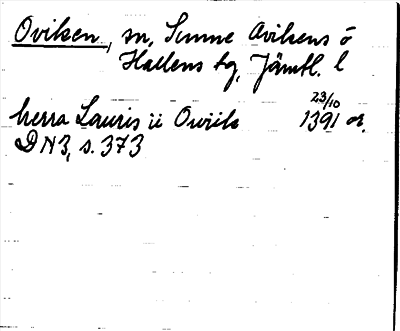 Oviken, sn, Sunne Ovikens o
Hallens tg, Jämtl. l
herra Lauris ii Owiik 23/10 1391 or.
DN3, s. 373